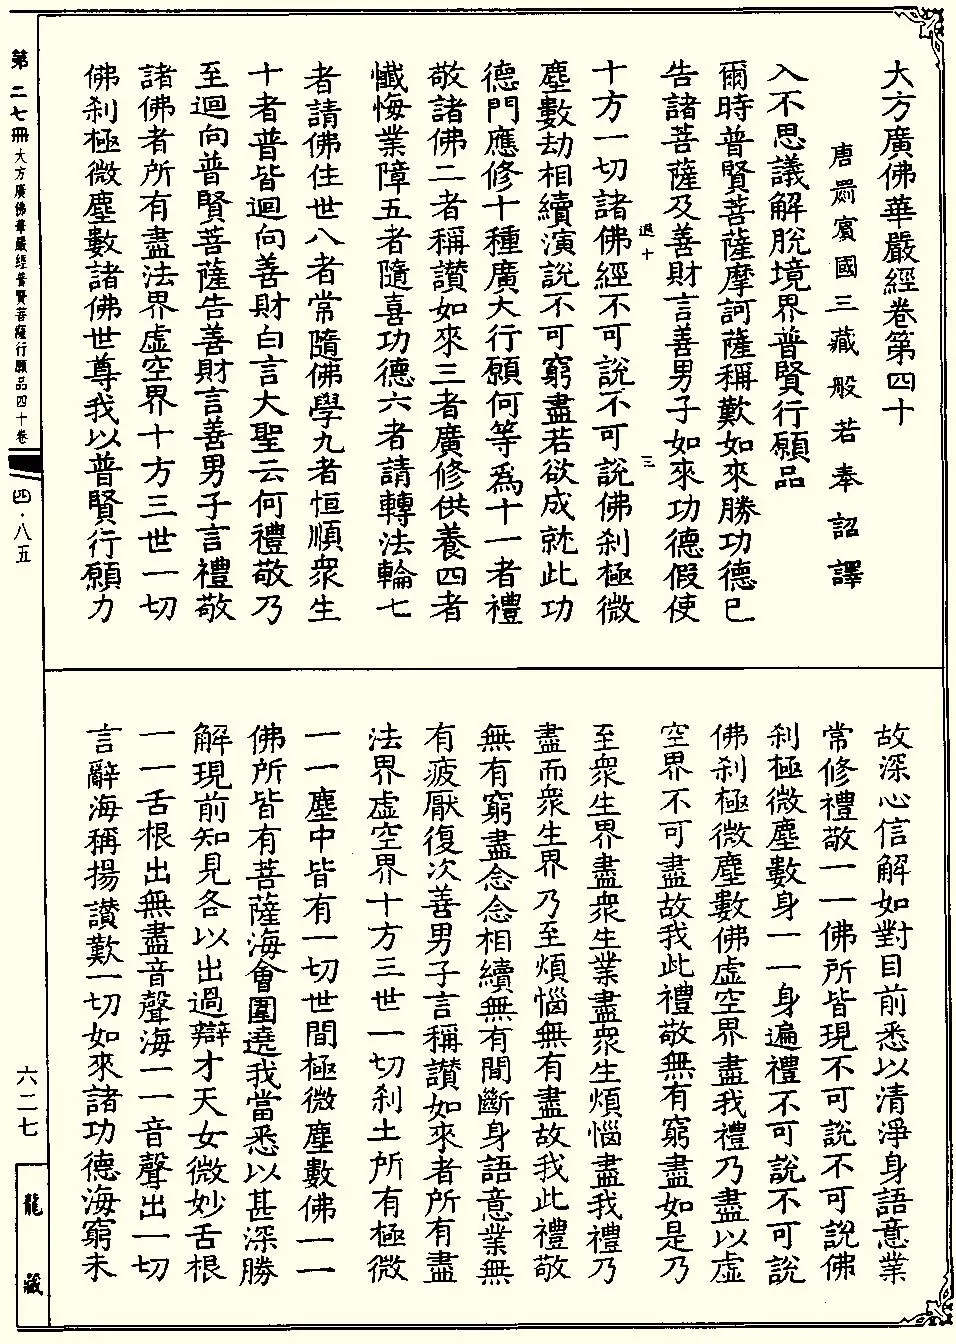 大方廣佛華嚴經卷第四十
唐罽賓國三藏般若奉詔譯
入不思議解脫境界普賢行願品
爾時普賢菩薩摩訶薩稱歎如來勝功德已
告諸菩薩及善財言善男子如來功德假使
遐十
三
十方一切諸佛經不可說不可說佛刹極微
塵數劫相續演說不可窮盡若欲成就此功
德門應修十種廣大行願何等爲十一者禮
敬諸佛二者稱讃如來三者廣修供養四者
懺悔業障五者隨喜功德六者請轉法輪七
者請佛住世八者常隨佛學九者恒順衆生
十者普皆迴向善財白言大聖云何禮敬乃
至迴向普賢菩薩告善財言善男子言禮敬
諸佛者所有盡法界虛空界十方三世一切
佛刹極微塵數諸佛世尊我以普賢行願力
故深心信解如對目前悉以清淨身語意業
常修禮敬一一佛所皆現不可說不可說佛
刹極微塵數身一一身遍禮不可說不可說
佛刹極微塵數佛虛空界盡我禮乃盡以虛
空界不可盡故我此禮敬無有窮盡如是乃
至衆生界盡衆生業盡衆生煩惱盡我禮乃
盡而衆生界乃至煩惱無有盡故我此禮敬
無有窮盡念念相續無有間斷身語意業無
有疲厭復次善男子言稱讃如來者所有盡
法界虛空界十方三世一切刹土所有極微
一一塵中皆有一切世間極微塵數佛一一
佛所皆有菩薩海會圍遶我當悉以甚深勝
解現前知見各以出過辯才天女微妙舌根
一一舌根出無盡音聲海一一音聲出一切
言辭海稱揚讃歎一切如來諸功德海窮未
第二七冊
大方廣佛華嚴經普賢菩薩行願品四十卷
四·八五
六二七
龍藏